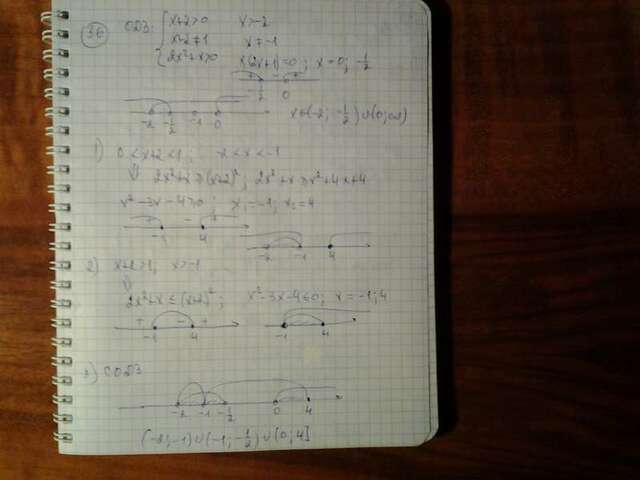 36
ОДЗ: { x+2>0 x>-2
x+2≠1 x≠-1
2x²+x>0 x(2x+1)=0; x=0; -1/2
+ - +
-1/2 0
-2 -1/2 -1 0 x∈(-2; -1/2)∪(0;∞)
1) 0<x+2<1; -2<x<-1
⇓ 2x²+x≥(x+2)²; 2x²+x≥x²+4x+4
x²-3x-4≥0; x₁=-1; x₂=4
+ - +
-1 4 -2 -1 4
2) x+2>1; x>-1
⇓
2x²+x≤(x+2)²; x²-3x-4≤0; x=-1;4
+ - +
-1 4 -1 4
3) С ОДЗ
-2 -1 -1/2 0 4
(-2;-1)∪(-1;-1/2)∪(0;4]